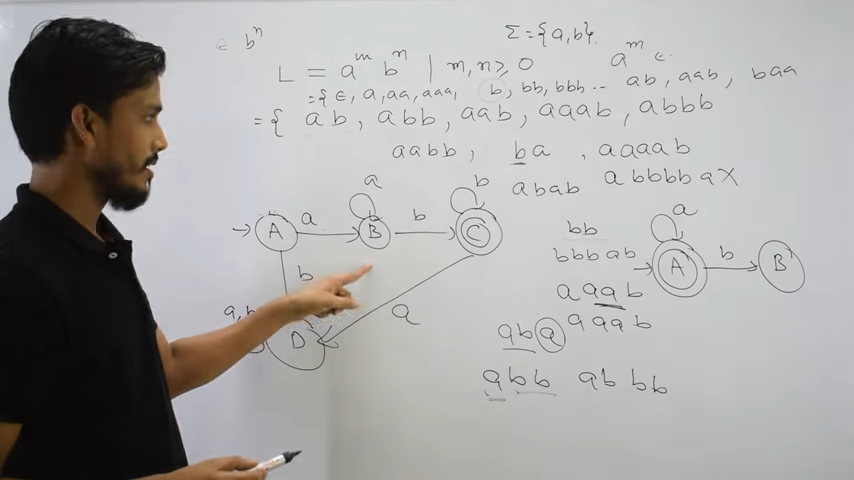 Σ = {a,b}.
∈ b^n
L = a^m b^n | m,n ≥ 0 a^m ∈
= { ∈, a, aa, aaa, b, bb, bbb ... ab, aab, baa
= { ab, abb, aab, aaab, abbb
aabb, ba, aaaab
abab abbbbaX
a b a
A a B b C
b
bb
bbbab
a
A b B
aaab
a,b D a
aba aaab
abb ab bb